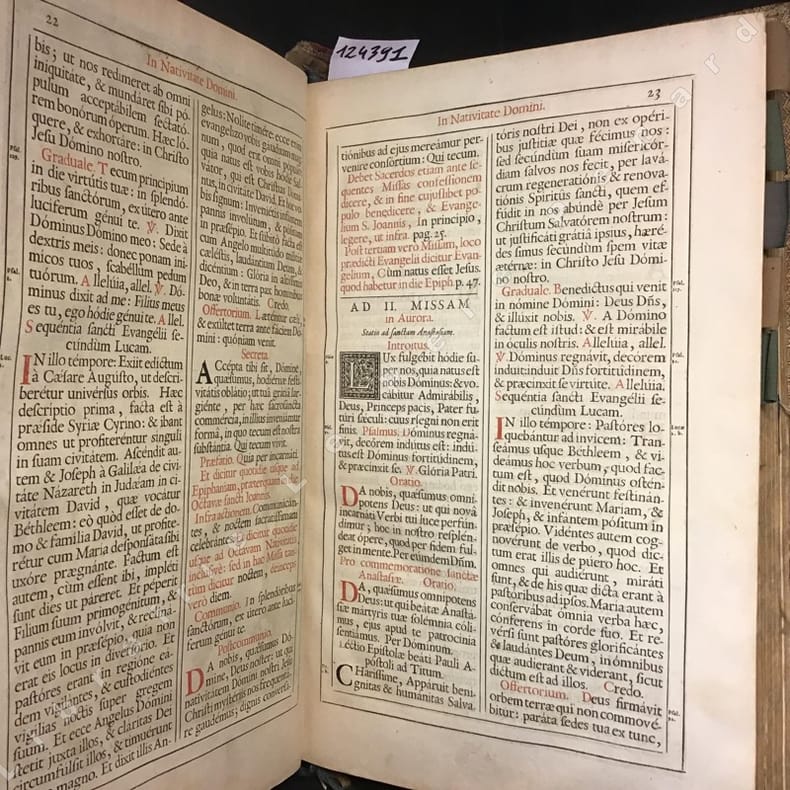 124391
22
In Nativitate Domini.
bis; ut nos redimeret ab omni
iniquitáte, & mundáret sibi pó-
pulum acceptábilem sectató-
rem bonórum óperum. Hæc ló-
quere, & exhortáre: in Christo
Jesu Dómino nostro.
Graduale. Tecum principium
in die virtútis tuæ: in splendó-
ribus sanctórum, ex útero ante
lucíferum génui te. ℣. Dixit
Dóminus Dómino meo: Sede à
dextris meis: donec ponam ini-
mícos tuos, scabéllum pedum
tuórum. Allelúia, allel. ℣. Dó-
minus dixit ad me: Fílius meus
es tu, ego hódie génuite. Allel.
Sequéntia sancti Evangélii se-
cúndùm Lucam.
IN illo témpore: Exiit edíctum
à Cæsare Augústo, ut descri-
berétur univérsus orbis. Hæc
descríptio prima, facta est à
præside Syriæ Cyríno: & ibant
omnes ut profiteréntur sínguli
in suam civitátem. Ascéndit au-
tem & Joseph à Galilæa de civi-
táte Názareth in Judæam in ci-
vitátem David, quæ vocátur
Béthleem: eò quòd esset de do-
mo & família David, ut profite-
rétur cum Maria desponsáta sibi
uxóre prægnánte. Factum est
autem, cùm essent ibi, impléti
sunt dies ut páreret. Et péperit
Fílium suum primogénitum, &
pannis eum invólvit, & reclíná-
vit eum in præsépio, quia non
erat eis locus in diversório. Et
pastóres erant in regióne ea-
dem vigilántes, & custodiéntes
vigílias noctis super gregem
suum. Et ecce Angelus Dómini
stetit juxta illos, & cláritas Dei
circumfúlsit illos, & timuérunt
magno. Et dixit illis An-
gelus: Nolite timére: ecce enim
evangelízo vobis gáudium mag-
num, quod erit omni pópulo:
quia natus est vobis hódie Sal-
vátor, qui est Christus Dómi-
nus, in civitáte David. Et hoc vo-
bis signum: Inveniétis infántem
pannis involútum, & pósitum
in præsépio. Et súbitò facta est
cum Angelo multitúdo milítiæ
cæléstis, laudántium Deum, &
dicéntium: Glória in altíssimis
Deo, & in terra pax homínibus
bonæ voluntátis. Credo.
Offertorium. Læténtur cæli,
& exúltet terra ante fáciem Dó-
mini: quóniam venit.
Secreta.
Accépta tibi sit, Dómine,
quæsumus, hodiérnæ festi-
vitátis oblátio: ut tuâ grátiâ lar-
giénte, per hæc sacrosáncta
commércia, in illíus inveniámur
forma, in quo tecum est nostra
substántia. Qui tecum vivit.
Præfatio. Quia per incarnáti.
Et dicitur quotidie usque ad
Epiphaniam, præterquam in
Octava sancti Joannis.
Infra actionem. Communicán-
tes, & noctem sacratíssimam
celebrántes: & dicitur quotidie
usque ad Octavam Nativitatis
inclusivè: sed in hac Missa tan-
tùm dicitur noctem, deinceps
verò diem.
Communio. In splendóribus
sanctórum, ex útero ante lucí-
ferum génui te.
Postcommunio.
DA nobis, quæsumus Dó-
mine, Deus noster: ut qui
nativitátem Dómini nostri Jesu
Christi mystériis nos frequentá-
re gaudémus; dignis conversa-
23
In Nativitate Domini.
tiónibus ad ejus mereámur per-
veníre consórtium: Qui tecum.
Debet Sacerdos etiam ante se-
quentes Missas confessionem
dicere, & in fine cujuslibet po-
pulo benedicere, & Evange-
lium S. Joannis, In princípio,
legere, ut infra. pag. 25.
Post tertiam verò Missam, loco
prædicti Evangelii dicitur Evan-
gelium, Cùm natus esset Jesus.
quod habetur in die Epiph. p. 47.
AD II. MISSAM
in Aurora.
Statio ad sanctam Anastasiam.
Introitus.
LUx fulgébit hódie su-
per nos, quia natus est
nobis Dóminus: & vo-
cábitur Admirábilis,
Deus, Princeps pacis, Pater fu-
túri sǽculi: cujus regni non erit
finis. Psalmus. Dóminus regná-
vit, decórem indútus est: indú-
tus est Dóminus fortitúdinem,
& præcínxit se. ℣. Glória Patri.
Oratio.
DA nobis, quæsumus omní-
potens Deus: ut qui novâ
incarnáti Verbi tui luce perfún-
dimur; hoc in nostro resplén-
deat ópere, quod per fidem ful-
get in mente. Per eúmdem Dñm.
Pro commemoratione sanctæ
Anastasiæ. Oratio.
DA, quæsumus omnípotens
Deus: ut qui beátæ Anastá-
siæ mártyris tuæ solémnia cóli-
mus, ejus apud te patrocínia
sentiámus. Per Dóminum.
Léctio Epístolæ beáti Pauli A-
póstoli ad Titum.
CHaríssime, Appáruit beni-
gnitas & humánitas Salva-
tóris nostri Dei, non ex opéri-
bus justítiæ quæ fécimus nos:
sed secúndùm suam misericór-
diam salvos nos fecit, per lavá-
crum regeneratiónis & renova-
tiónis Spíritûs sancti, quem ef-
fúdit in nos abúndè per Jesum
Christum Salvatórem nostrum:
ut justificáti grátiâ ipsíus, hæré-
des simus secúndùm spem vitæ
ætérnæ: in Christo Jesu Dómi-
no nostro.
Graduale. Benedíctus qui venit
in nómine Dómini: Deus Dñs,
& illúxit nobis. ℣. A Dómino
factum est istud: & est mirábile
in óculis nostris. Allelúia, allel.
℣. Dóminus regnávit, decórem
índuit: índuit Dñs fortitúdinem,
& præcínxit se virtúte. Allelúia.
Sequéntia sancti Evangélii se-
cúndùm Lucam.
IN illo témpore: Pastóres lo-
quebántur ad ínvicem: Tran-
seámus usque Béthleem, & vi-
deámus hoc verbum, quod fac-
tum est, quod Dóminus ostén-
dit nobis. Et venérunt festinán-
tes: & invenérunt Maríam, &
Joseph, & infántem pósitum in
præsépio. Vidéntes autem cog-
novérunt de verbo, quod dic-
tum erat illis de púero hoc. Et
omnes qui audiérunt, miráti
sunt, & de his quæ dicta erant à
pastóribus ad ipsos. María autem
conservábat ómnia verba hæc,
cónferens in corde suo. Et re-
vérsi sunt pastóres glorificántes
& laudántes Deum, in ómnibus
quæ audíerant & víderant, sicut
dictum est ad illos. Credo.
Offertorium. Deus firmávit
orbem terræ qui non commové-
bitur: paráta sedes tua ex tunc,